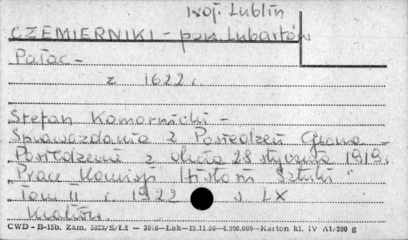 woj. Lublin
CZEMIERNIKI - pow. Lubartów
Pałac -
z 1622 r.
Stefan Komornicki -
Sprawozdania z Posiedzeń Grona -
Posiedzenie z dnia 28 stycznia 1919.
"Prace Komisji Historii Sztuki"
Tom II r. 1922 s. LX
Kraków.
CWD - B-15b. Zam. 2323/S/Łż - 3016-Łak-10.11.56-4.000.000-Karton kl. IV A1/200 g